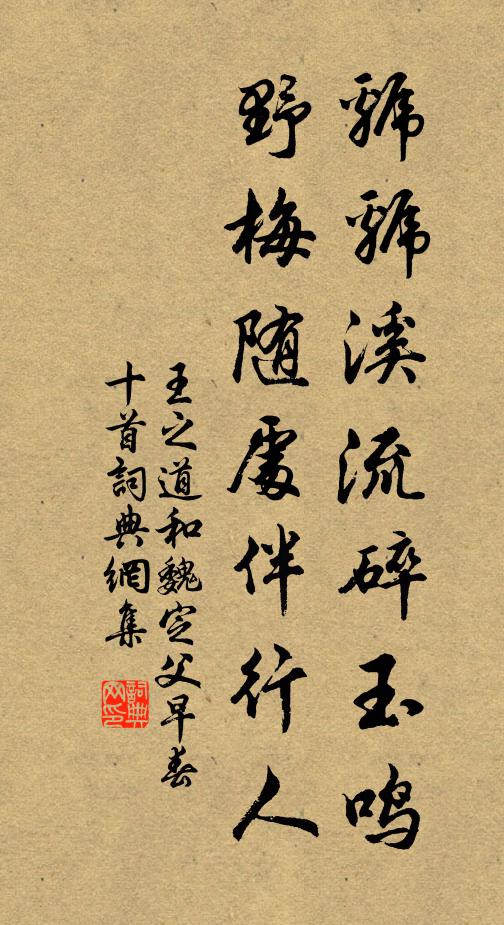 虢虢溪流碎玉鸣
野梅随處伴行人
王之道和魏定父早春
十首詞典網集
詞典
网印